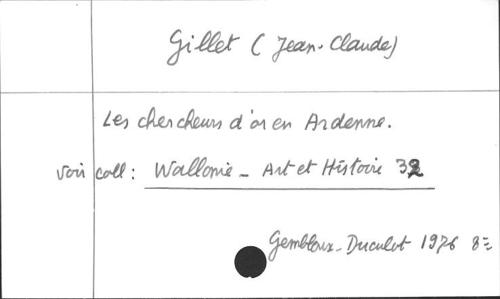 Gillet (Jean-Claude)
Les chercheurs d'or en Ardenne.
Voir coll: Wallonie - Art et Histoire 32
Gembloux-Duculot 1976 8=